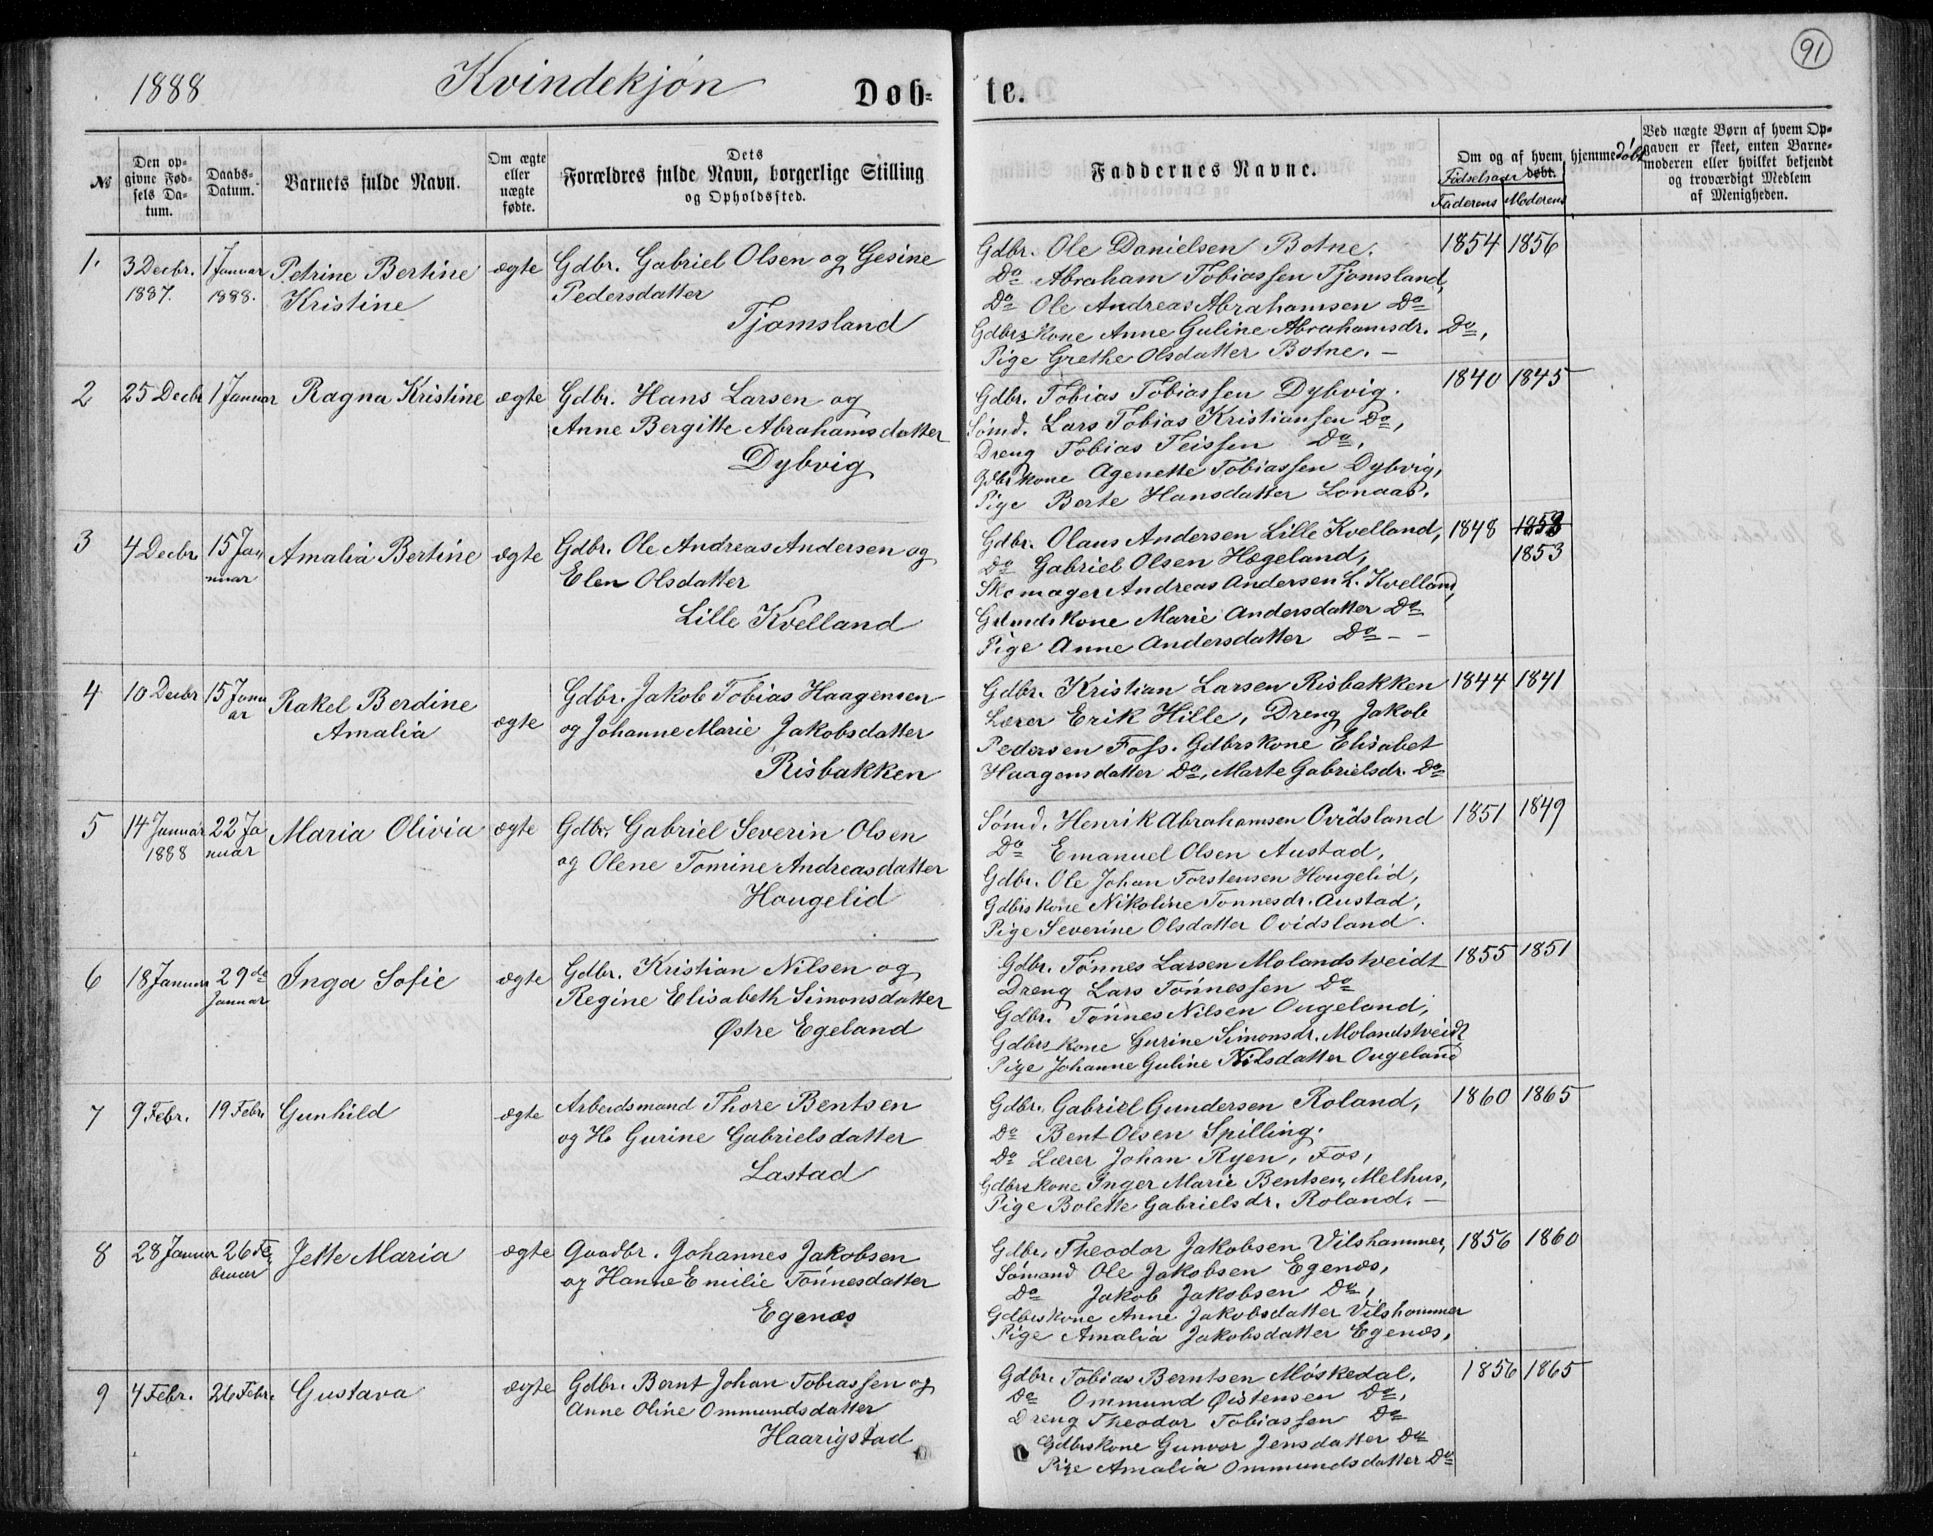 91
1888 Kvindekjøn Døb= te.
№ | Den op-givne Fød-sels Da-tum. | Daabs-Datum. | Barnets fulde Navn. | Om ægte eller uægte fødte. | Dets Forældres fulde Navn, borgerlige Stilling og Opholdssted. | Faddernes Navne. | Om og af hvem hjemmedøbt døbt. Fødselsaar Faderens Moderens | Ved uægte Børn af hvem Op-gaven er skeet, enten Barne-moderen eller hvilket bekjendt og troværdigt Medlem af Menigheden.
1. 3 Decbr. 1887. 1 Januar 1888. Petrine Bertine Kristine ægte
Gdbr. Gabriel Olsen og Gesine
Pedersdatter
Tjomsland
Gdbr. Ole Danielsen Botne. 1854 1856
Do Abraham Tobiassen Tjomsland,
Do Ole Andreas Abrahamsen Do
Gdbrskone Anne Guline Abrahamsdr. Do,
Pige Grethe Olsdatter Botne. –
2 25 Decbr 1 Januar Ragna Kristine ægte
Gdbr. Hans Larsen og
Anne Bergitte Abrahamsdatter
Dybvig
Gdbr. Tobias Tobiassen Dybvig. 1840 1845
Sømd. Lars Tobias Kristiansen Do,
Dreng Tobias Teissen Do,
Gdbrkone Agenette Tobiassen Dybvig,
Pige Berte Hansdatter Lonaas.
3 4 Decbr 15 Januar Amalia Bertine ægte
Gdbr. Ole Andreas Andersen og
Elen Olsdatter
Lille Kvelland
Gdbr. Olaus Andersen Lille Kvelland, 1848
Do Gabriel Olsen Hægeland, 1853
Skomager Andreas Andersen L. Kvelland,
Gdmdskone Marie Andersdatter Do
Pige Anne Andersdatter Do – –
4 10 Decbr 15 Januar Rakel Berdine Amalia ægte
Gdbr. Jakob Tobias Haagensen
og Johanne Marie Jakobsdatter
Risbakken
Gdbr. Kristian Larsen Risbakken 1844 1841
Lærer Erik Hille, Dreng Jakob
Pedersen Foss. Gdbrskone Elisabet
Haagensdatter Do, Marte Gabrielsdr. Do
5 14 Januar 1888 22 Januar Maria Olivia ægte
Gdbr. Gabriel Severin Olsen
og Olene Tomine Andreasdatter
Hougelid
Sømd. Henrik Abrahamsen Ovidsland 1851 1849
Do Emanuel Olsen Austad,
Gdbr. Ole Johan Torstensen Hougelid,
Gdbrskone Nikoline Tonnesdr. Austad,
Pige Severine Olsdatter Ovidsland.
6 18 Januar 29de Januar Inga Sofie ægte
Gdbr. Kristian Nilsen og
Regine Elisabeth Simonsdatter
Østre Egeland
Gdbr. Tønnes Larsen Molandstveidt 1855 1851
Dreng Lars Tønnessen Do
Gdbr. Tønnes Nilsen Ougeland,
Gdbrskone Gurine Simonsdr. Molandstveidt
Pige Johanne Guline Nilsdatter Ougeland
7 9 Febr. 19 Febr Gunhild ægte
Arbeidsmand Thore Bentsen
og H. Gurine Gabrielsdatter
Lastad
Gdbr. Gabriel Gundersen Roland, 1860 1865
Do Bent Olsen Spilling.
Do Lærer Johan Ryen, Fos,
Gdbrskone Inger Marie Bentsen, Melhus,
Pige Bolette Gabrielsdr. Roland. –
8 28 Januar 26 Februar Jette Maria ægte
Gaadbr. Johannes Jakobsen
og Hanne Emilie Tønnesdatter
Egenæs
Gdbr. Theodor Jakobsen Vilshammer, 1856 1860
Sømand Ole Jakobsen Egenæs,
Do Jakob Jakobsen Do,
Gdbrskone Anne Jakobsdatter Vilshammer
Pige Amalia Jakobsdatter Egenæs,
9 4 Febr. 26 Febr. Gustava ægte
Gdbr. Bernt Johan Tobiassen og
Anne Oline Ommundsdatter
Haarigstad
Gdbr. Tobias Berntsen Møskedal. 1856 1865
Do Ommund Øistensen Do,
Dreng Theodor Tobiassen Do
Gdbrskone Gunvor Jensdatter Do
Pige Amalia Ommundsdatter Do